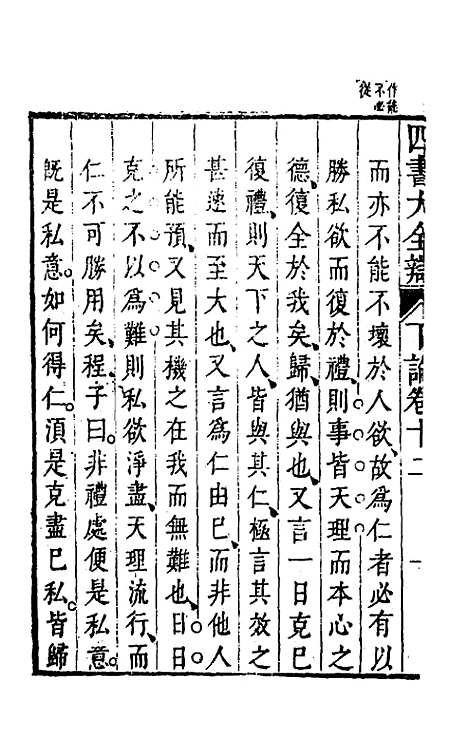 作能
不必
從
四書大全辯 下論卷十二 一
而亦不能不壞於人欲、故爲仁者必有以
勝私欲而復於禮、則事皆天理而本心之
德、復全於我矣、歸、猶與也、又言一日克己
復禮、則天下之人、皆與其仁、極言其效之
甚速而至大也、又言爲仁由己、而非他人
所能預、又見其機之在我而無難也、日日
克之不以爲難則私欲淨盡、天理流行、而
仁不可勝用矣、程子曰。非禮處便是私意。
既是私意。如何得仁。湏是克盡己私。皆歸